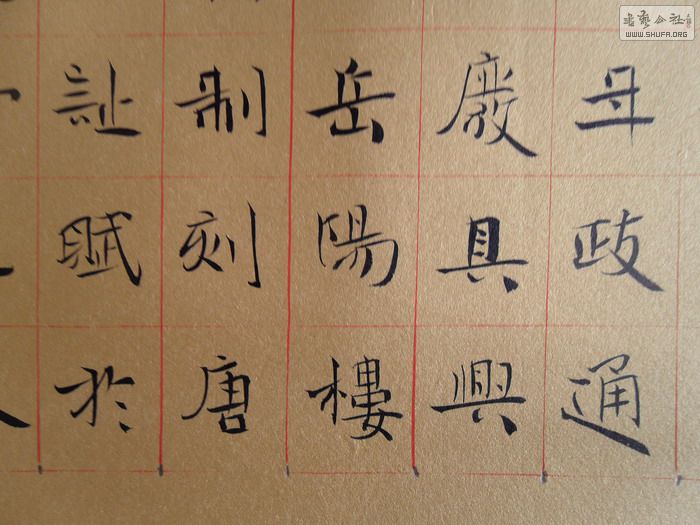 年政通
廢具興
岳陽樓
制刻唐
詩賦於
书艺公社
WWW.SHUFA.ORG